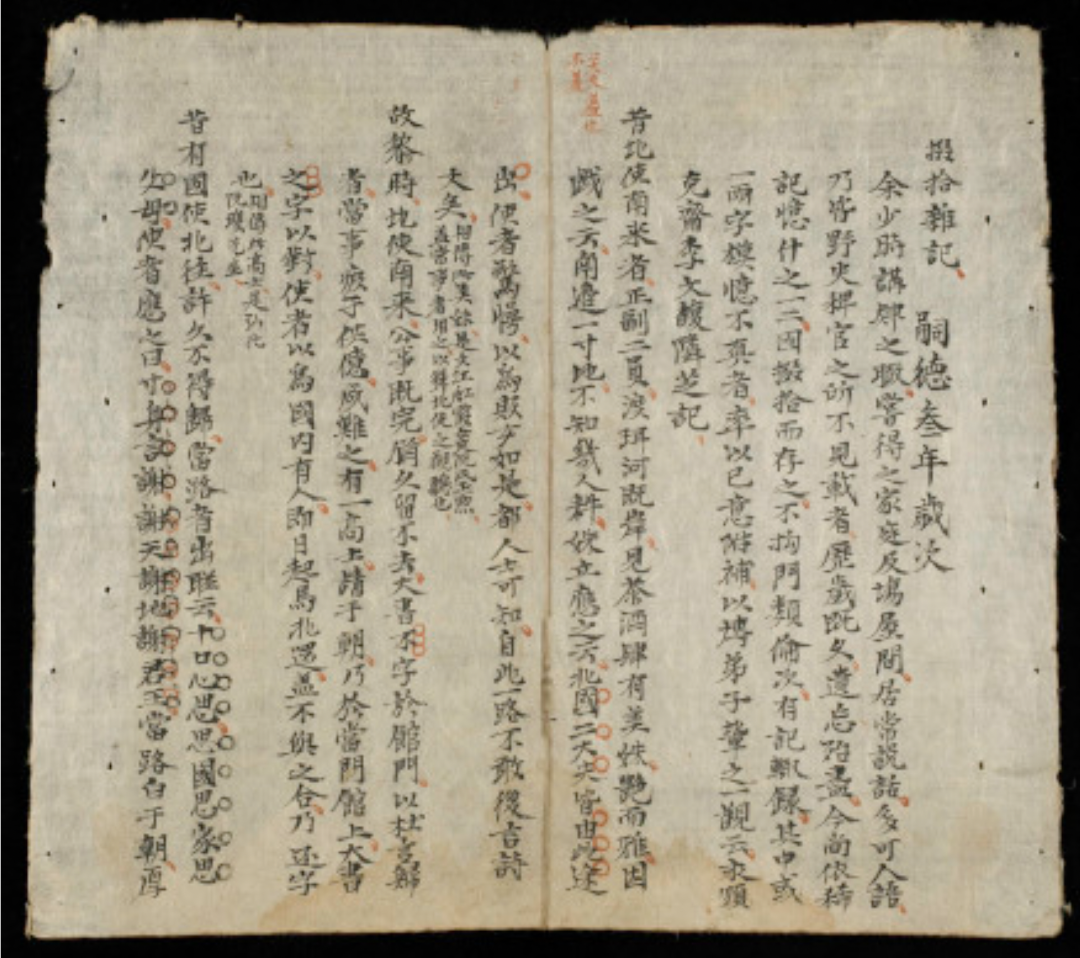 掇拾雜記 嗣德叁年歲次
余少時講肄之暇嘗得之家庭及場屋間居常説話多可人語
乃皆野史稗官之所不見載者歷歲既久遺忘殆盡今尚依稀
記憶什之一二因掇拾而存之不拘門類倫次有記輒錄其中或
一兩字模憶不真者率以己意附補以塼弟子輩之一觀云永順
克齋李文馥隣芝記
昔北使南來者正副二員渡珥河既岸見茶酒肆有美姝艷而雅因
戲之云南邊一寸地不知幾人耕嫂立應之云北國二大夫皆由此途
出使者驚愕以為敗手如是都人士可知自此一路不敢復言詩
大矣
故黎時北使南來公事既完猶久留不去大書不字於館門以杜言歸
者當事疲于供億咸難之有一高士請于朝乃於當門館上大書
之字以對使者以為國内有人即日起馬北還蓋不與之合乃还字
也
昔有國使北往許久不得歸當路者出聯云十口心思思國思家思
父母使者應之曰寸身言謝謝天謝地謝君王當路白于朝厚